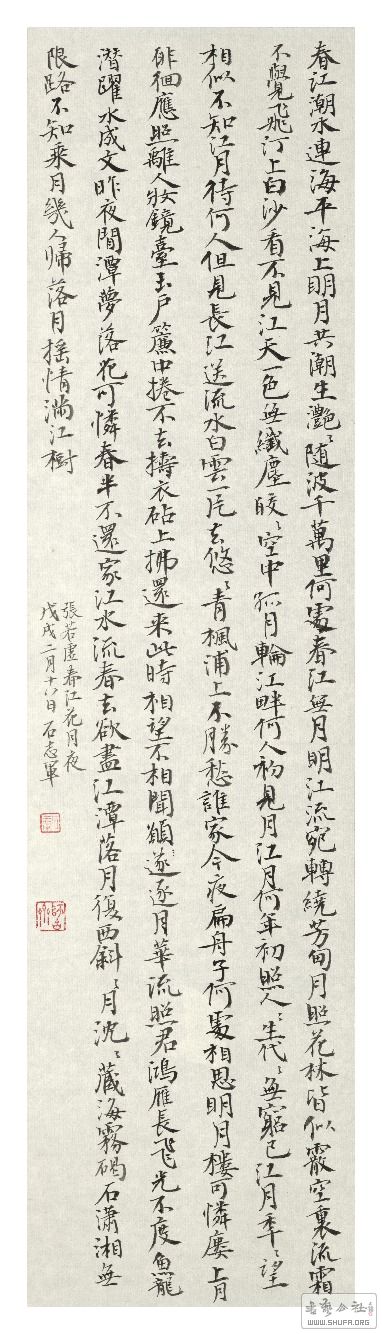 春江潮水連海平海上明月共潮生灩〻随波千萬里何處春江無月明江流宛轉繞芳甸月照花林皆似霰空裏流霜
不覺飛汀上白沙看不見江天一色無纖塵皎〻空中孤月輪江畔何人初見月江月何年初照人〻生代〻無窮已江月年〻望
相似不知江月待何人但見長江送流水白雲一片去悠〻青楓浦上不勝愁誰家今夜扁舟子何處相思明月樓可憐廔上月
徘徊應照離人妝鏡臺玉戶簾中捲不去擣衣砧上拂還来此時相望不相聞願遂逐月華流照君鴻雁長飛光不度魚龍
潛躍水成文昨夜閒潭夢落花可憐春半不還家江水流春去欲盡江潭落月復西斜〻月沈〻藏海霧碣石瀟湘無
限路不知乘月幾人歸落月摇情滿江樹
張若虛春江花月夜
戊戌二月十八日石志軍
WWW.SHUFA.ORG